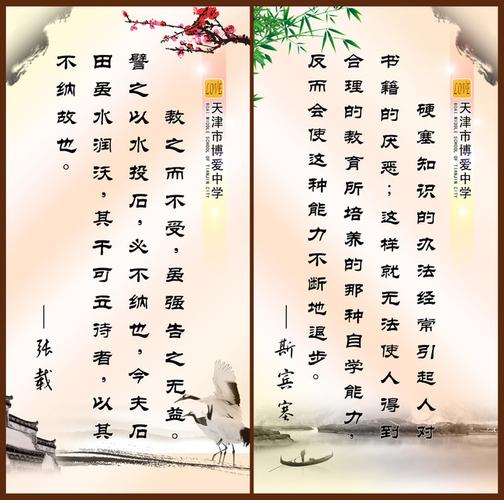 LOVE
天津市博爱中学
BOAI MIDDLE SCHOOL OF TIANJIN CITY
教之而不受，虽强告之无益。
譬之以水投石，必不纳也，今夫石
田虽水润沃，其干可立待者，以其
不纳故也。
——张载
LOVE
天津市博爱中学
BOAI MIDDLE SCHOOL OF TIANJIN CITY
硬塞知识的办法经常引起人对
书籍的厌恶；这样就无法使人得到
合理的教育所培养的那种自学能力，
反而会使这种能力不断地退步。
——斯宾塞